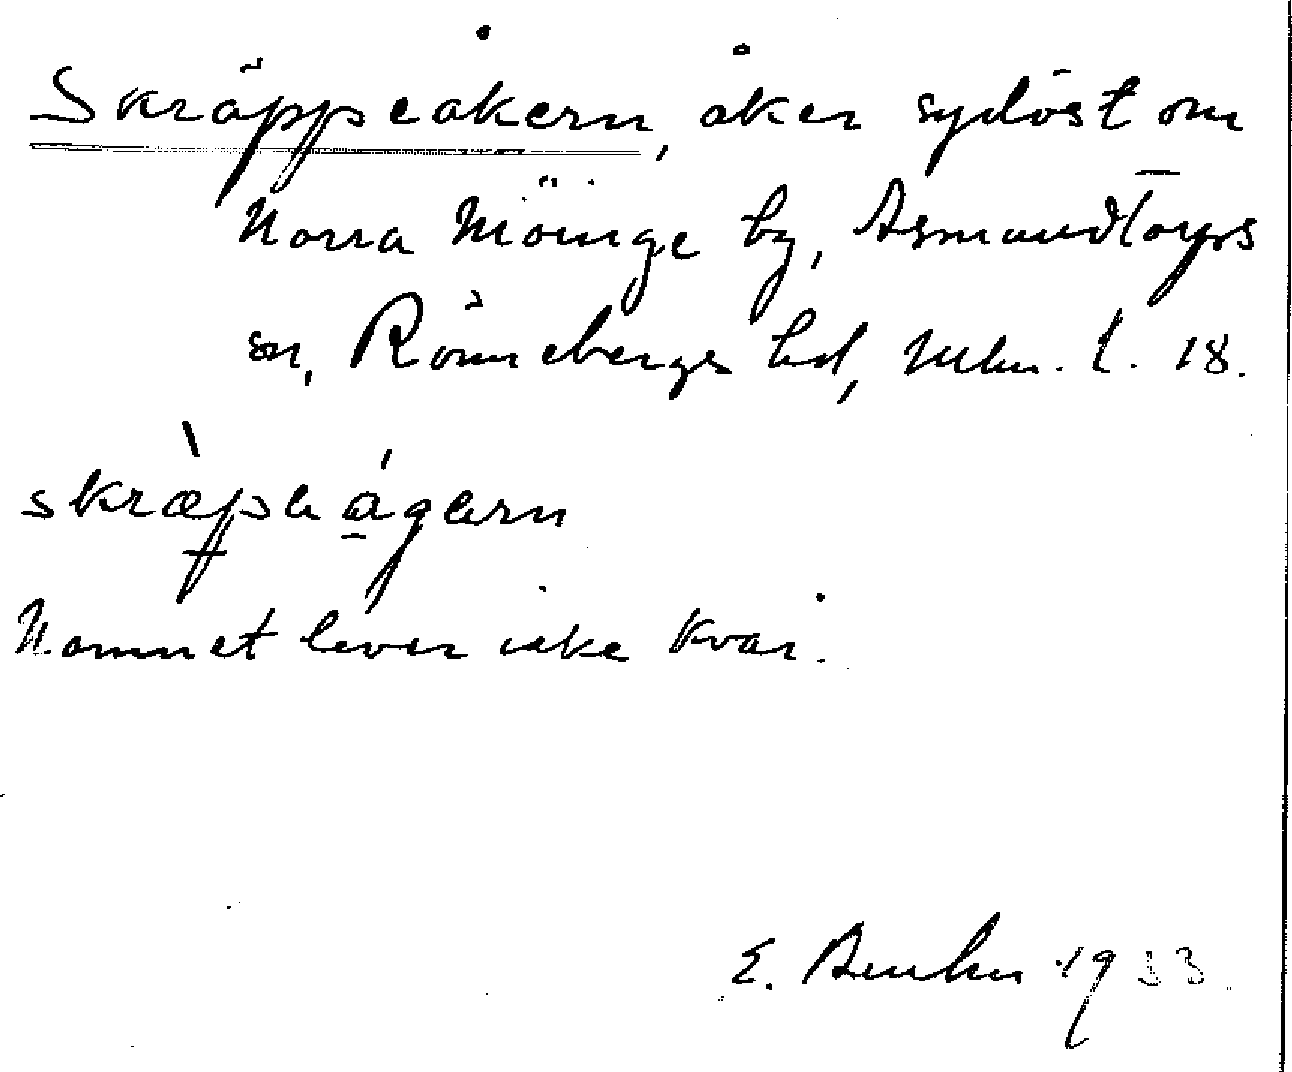 Skräppeåkern, åker sydöst om
Norra Möinge by, Asmundtorps
sn, Rönnebergs hd, Mlm. l. 18.
skræpɐágɐrn
Namnet lever icke kvar.
E. 1933